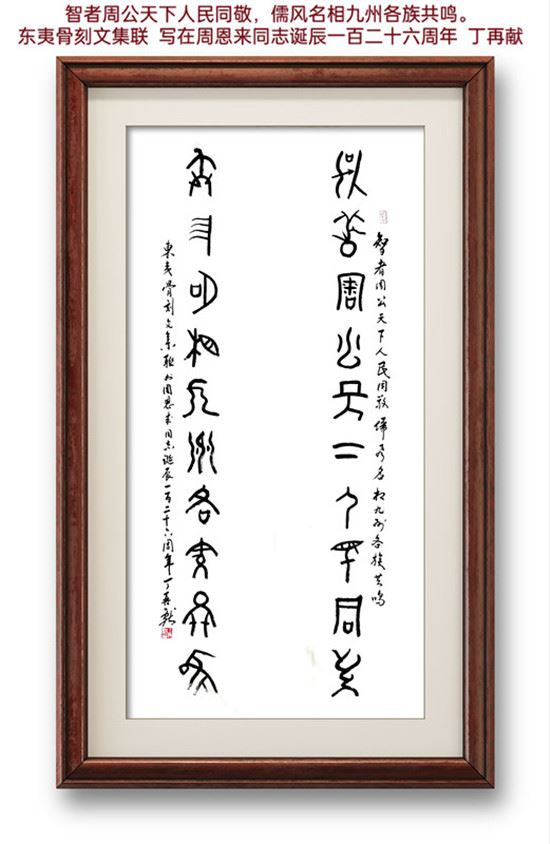 智者周公天下人民同敬，儒风名相九州各族共鸣。
东夷骨刻文集联 写在周恩来同志诞辰一百二十六周年 丁再献
智者周公天下人民同敬 儒风名相九州各族共鸣
智者周公天下人民同敬
儒风名相九州各族共鸣
東夷骨刻文集联 周恩来同志誕辰一百二十六周年丁再献